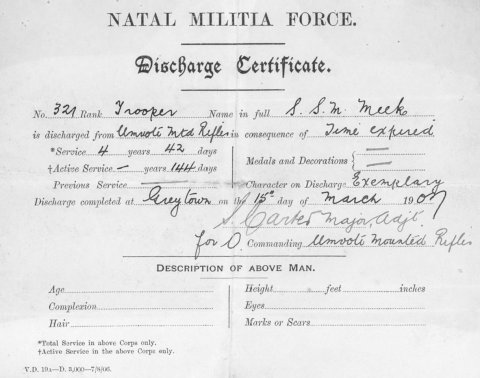 NATAL MILITIA FORCE.
Discharge Certificate.
No. 321 Rank Trooper Name in full S. S. M. Meek
is discharged from Umvoti Mtd Rifles in consequence of Time expired
*Service 4 years 42 days
†Active Service — years 144 days Medals and Decorations { —
Previous Service — Character on Discharge Exemplary
Discharge completed at Greytown on the 15th day of March 1907
S. Carter Major, Adjt.
for O. Commanding Umvoti Mounted Rifles
DESCRIPTION OF ABOVE MAN.
Age Height feet inches
Complexion Eyes
Hair Marks or Scars
*Total Service in above Corps only.
†Active Service in the above Corps only.
V.D. 19A—D. 5,000—7/8/06.